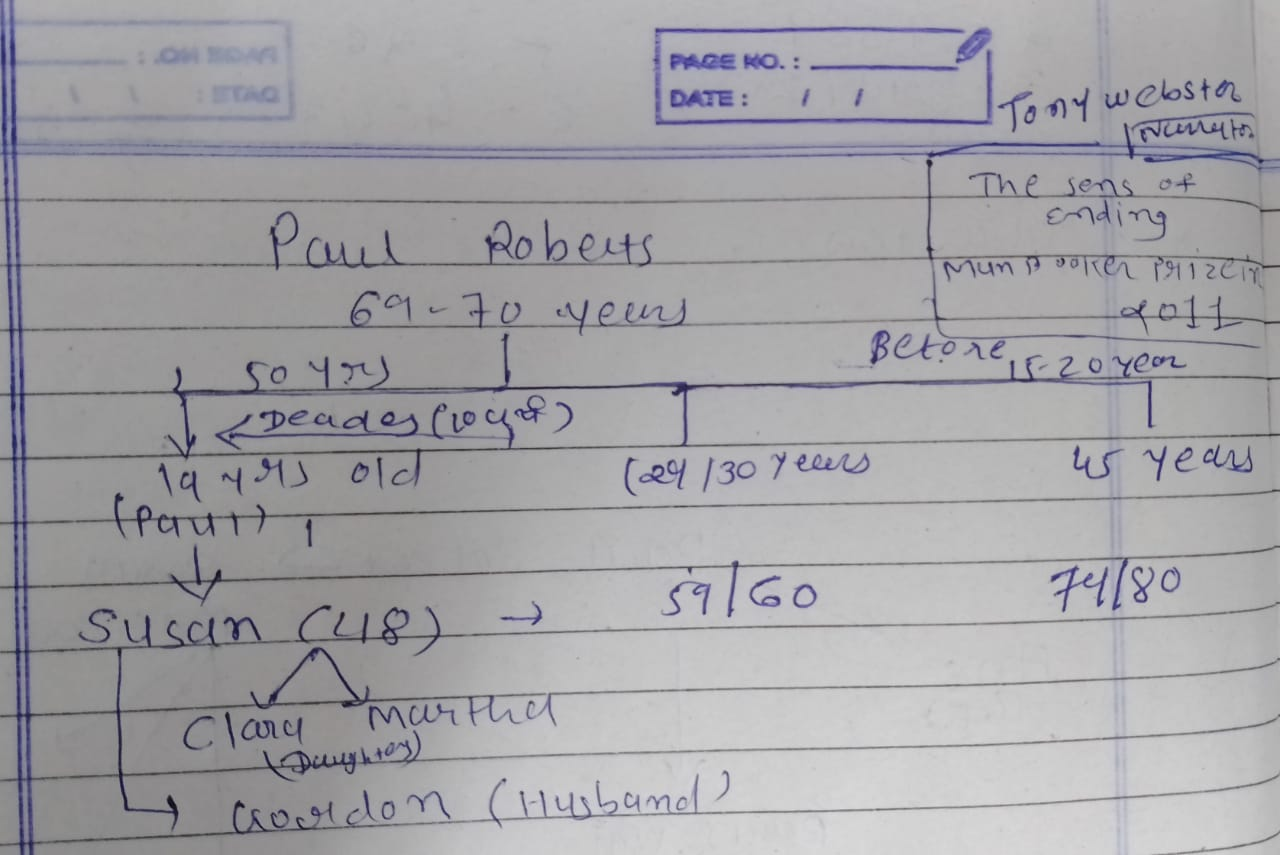 PAGE NO. :
DATE : / /
Tony Webster
Narrator
The sens of
ending
Man Booker Prize in
2011
Paul Roberts
69-70 years
50 yrs
Before 15-20 year
Deades (10
19 yrs old
(29/30 years
45 years
(Paul)
Susan (48) → 59/60 74/80
Clara Martha
(Daughter)
Gordon (Husband)